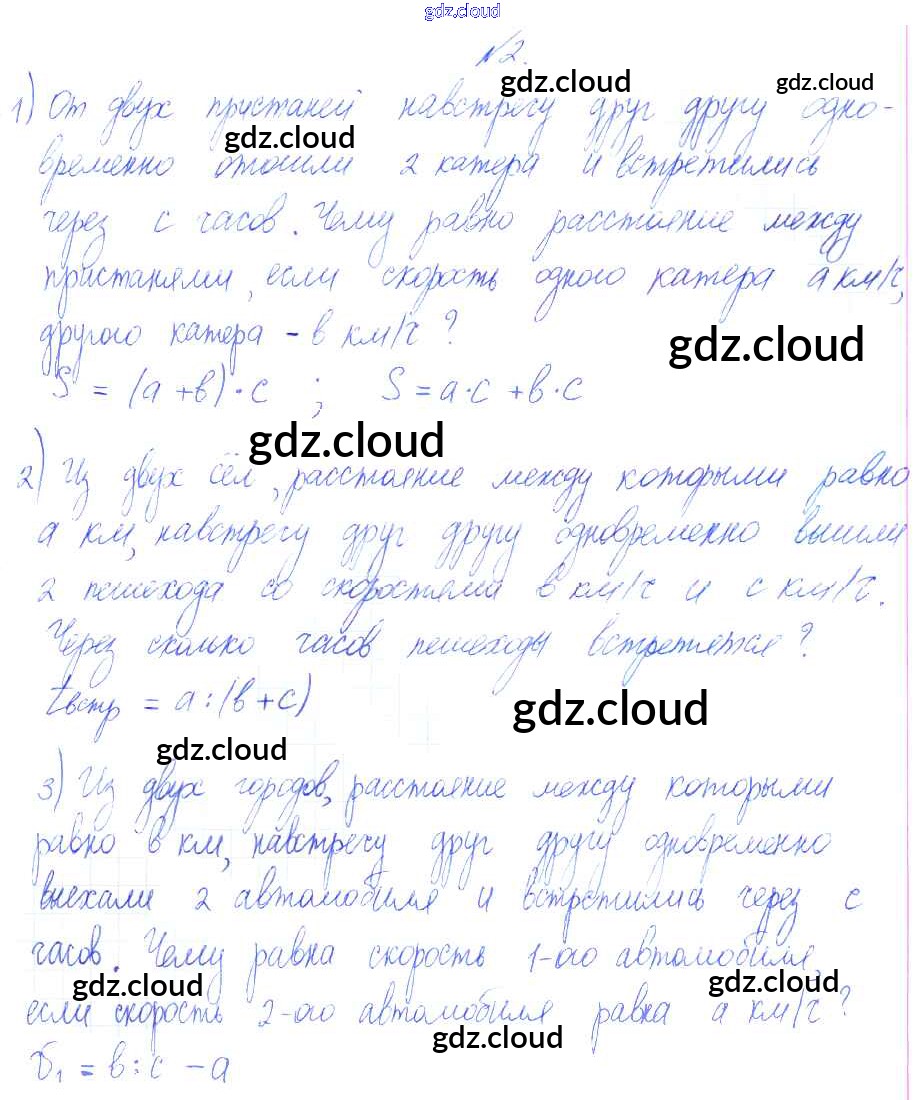 gdz.cloud
№2.
gdz.cloud
gdz.cloud
1) От двух пристаней навстречу друг другу одно-
gdz.cloud
временно отошли 2 катера и встретились
через с часов. Чему равно расстояние между
пристанями, если скорость одного катера а км/ч,
другого катера - в км/ч?
gdz.cloud
S = (а + в) · с ; S = а · с + в · с
gdz.cloud
2) Из двух сёл, расстояние между которыми равно
а км, навстречу друг другу одновременно вышли
2 пешехода со скоростями в км/ч и с км/ч.
Через сколько часов пешеходы встретятся?
tвстр = а : (в + с)
gdz.cloud
gdz.cloud
3) Из двух городов, расстояние между которыми
равно в км, навстречу друг другу одновременно
выехали 2 автомобиля и встретились через с
часов. Чему равна скорость 1-ого автомобиля,
gdz.cloud
gdz.cloud
если скорость 2-ого автомобиля равна а км/ч?
gdz.cloud
v₁ = в : с - а